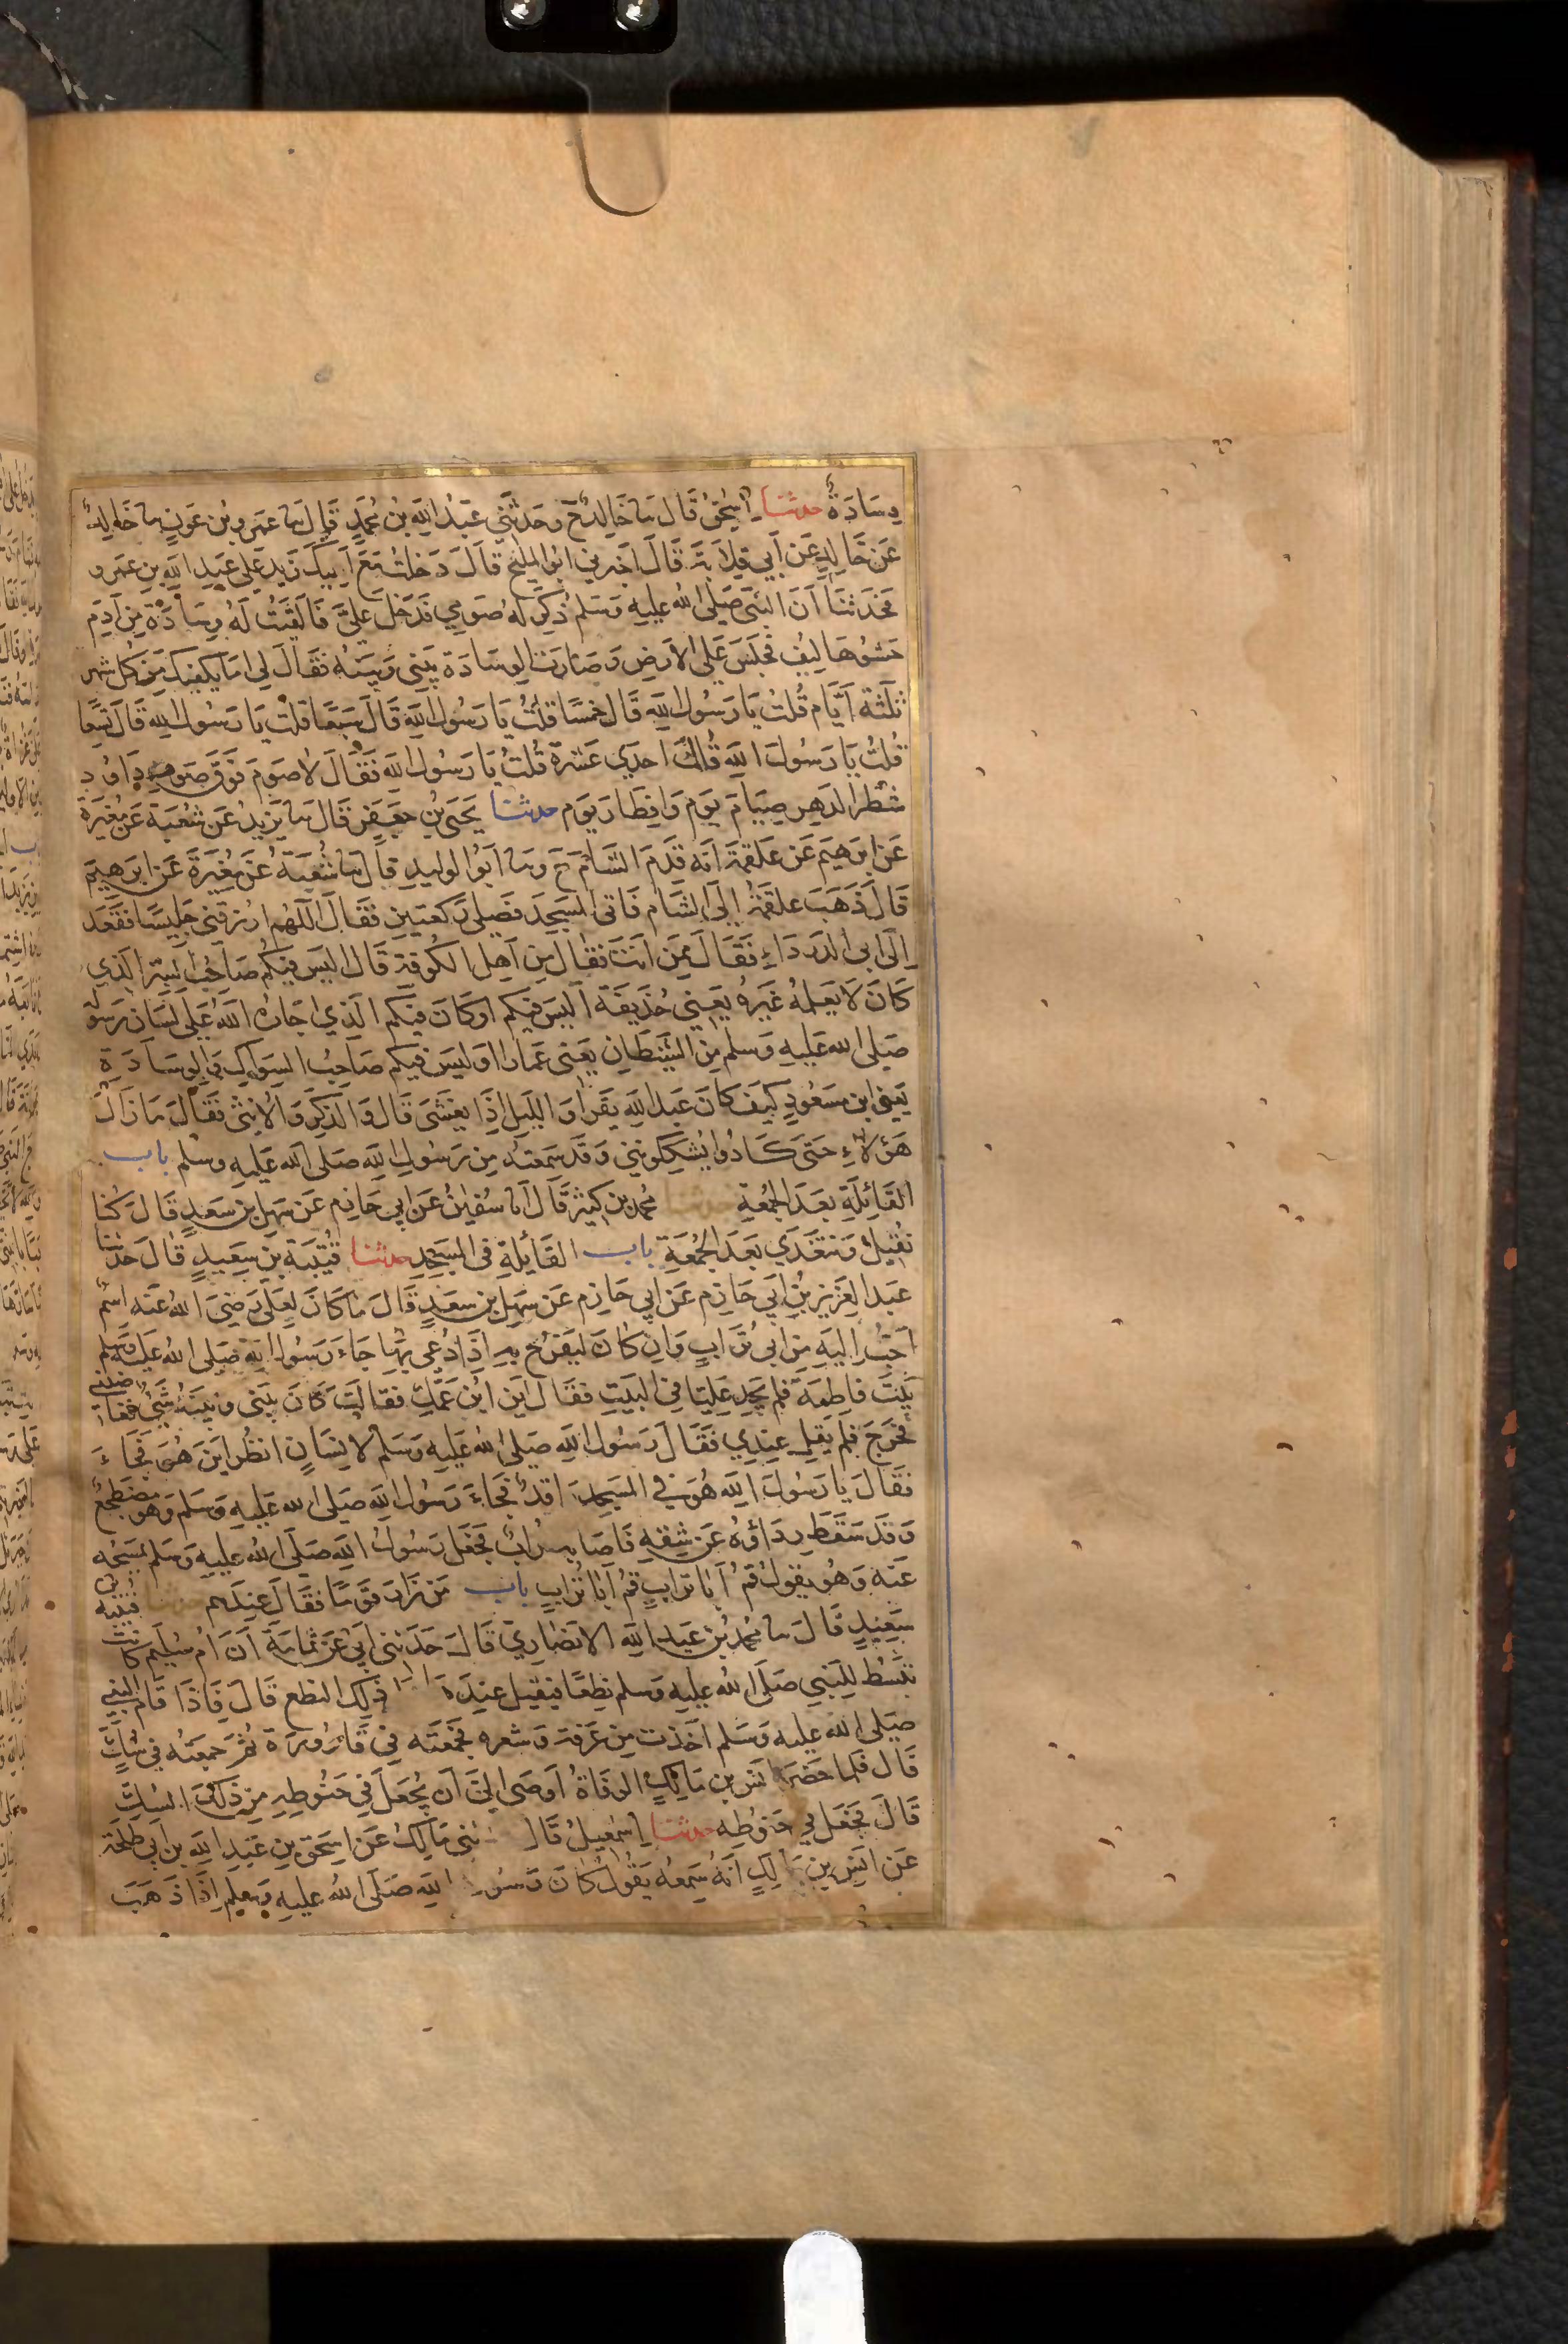 وِسَادَةٌ حدثنا إسْحٰقُ قَالَ سا خَالِدٌ ح وَحَدثَّنِي عَبْدُ اللهِ بْنُ مُحَمَّدٍ قَالَ سا عَمرو بْنُ عَوْنٍ سا خَالِدٌ
عَن خَالِدٍ عَن اَبِي قِلَابَةَ قَالَ اَخبَرني ابُو المَلِيح قَالَ دَخَلتُ مَعَ اَبِيكَ زَيْدٍ عَلى عَبدِ اللهِ بن عَمرو
فَحَدثَنَا اَنَّ النَّبيَّ صَلَّى اللهُ عليهِ وَسَلم ذُكِرَ لَهُ صَومِي فَدَخَلَ عَلَيَّ فَالقَيتُ لَهُ وِسَادَة مِن اَدَمٍ
حَشوُهَا لِيْف فجَلَسَ عَلَى الاَرضِ وَصَارَت الوِسَادَة بَيْني وَبينَهُ فقَالَ لي امَا يَكفِيكَ مِن كُل شَهر
ثَلثَة اَيَّام قُلتُ يَا رَسُول اللهِ قَالَ خَمسًا قلتُ يَا رَسُولَ اللهِ قَالَ سَبعًا قلتُ يَا رَسُول اللهِ قَالَ تِسعًا
قُلتُ يَا رَسُولَ اللهِ قَالَ احدَي عَشرَة قُلتُ يَا رَسُولَ اللهِ فَقَالَ لا صَومَ فَوقَ صَومِ دَاوُد
شَطرَ الدَهرِ صِيَامَ يَوم وَافطَار يَوم حدثنا يَحيَى بْن جَعفَر قَالَ سا يَزِيد عَن شُعبَة عَن مُغِيرَة
عَن ابرَهيم عَن عَلقمَة انَّه قَدَمَ الشَّامَ ح وسا اَبُوا الوليدِ قالَ سا شُعبَةُ عَن مُغِيرَةَ عَن ابرَهيم
قَالَ ذَهَبَ عَلقمَةُ اِلَى الشَام فَاتَى المَسجِدَ فصَلى رَكعَتينِ فَقَالَ اللّهُم ارزقنِي جَلِيسًا فَقَعَدَ
اِلَى ابي الدَردَاءِ فَقَالَ مِمَن انتَ فقَال مِن اَهلِ الكُوفَةِ قَالَ اليسَ فِيكُم صَاحِبُ السِرِ الَّذِي
كَانَ لَا يَعلَمهُ غَيرهُ يَعني حُذَيفَة اليسَ فيكُم اوكَانَ فِيكُم الَّذِي اجَارَهُ اللهُ عَلَى لسَانِ رَسُولِهِ
صَلى الله عَليهِ وَسَلم مِن الشَيطَانِ يَعنى عَمارا اوَليسَ فيكم صَاحِبُ السوَاكِ وَالوِسَادَةِ
يَعنى ابن مَسعُودٍ كَيفَ كَانَ عَبدُ اللهِ يَقرا وَاللَّيلِ اِذَا يغشَى قَالَ وَالذَكَرِ وَالاُنثَى فقَالَ مَا زَالَ
هَؤلاءِ حَتى كَادُوا يُشَكِكُونَنِي وَقَد سَمِعتهُ مِن رَسُولِ اللهِ صَلى الله عَليهِ وسَلم باب
القَائِلَةِ بَعدَ الجُمُعَةِ حدثنا مُحَمدُ بن كَثيرٍ قَالَ انا سُفيٰنُ عَن ابِي حَازِم عَن سَهل بن سَعدٍ قَالَ كُنا
نقِيلُ وَنتغَدَي بَعدَ الجُمُعَةِ باب القَايلَةِ في المَسجِدِ حدثنا قُتَيبَةُ بنُ سَعِيدٍ قَالَ حَدثنا
عَبد العَزِيز بْنُ ابي حَازِم عَن ابي حَازِم عَن سَهلِ بن سَعدٍ قَالَ مَا كَانَ لِعَلى رَضِيَ اللهُ عَنه اسْم
اَحَبُّ اِليهِ مِن ابي تُرَابٍ وَان كَانَ لَيَفرَحُ بهِ اِذَا دُعِي بِهَا جَاءَ رَسُول اللهِ صَلى اللهُ عَليهِ وَسَلم
بَيْتَ فاطِمَة فلم يَجِد عَليًا في البَيتِ فقَالَ اَيْن ابْن عَمَّكِ فقالَت كَانَ بَيني وَبَينَهُ شَيْءٌ فغاضَبَنِي
فَخَرَجَ فلم يَقِل عِندِي فَقَالَ رَسُول اللهِ صَلى الله عَليهِ وَسلم لِانسَانٍ انظُر اينَ هُوَ فَجَاءَ
فَقَالَ يا رَسُولَ اللهِ هُوَ في المَسجِد رَاقدٌ فَجَاءَ رَسُول اللهِ صَلى الله عليهِ وَسلم وهو مضطجعٌ
وَقَد سَقَطَ رِدَاؤهُ عَن شِقهِ فَاصَابه تُرابٌ فجَعَلَ رَسُولُ اللهِ صَلَى اللهُ عليهِ وَسَلم يَمسَحُه
عَنه وَهُو يقولُ قُم اَبَا تُرَابٍ قُم اَبَا تُرَابٍ باب مَن زَارَ قَوْمًا فَقَالَ عِندَهم حدثنا قتيبة بن
سَعِيدٍ قَالَ سا مُحمد بْن عَبدِ اللهِ الانصَارِيّ قَالَ حَدَثني اَبي عَن ثُمَامَة اَنَّ اُمَّ سُلَيم كانت
تَبْسُط لِلنبي صَلى الله عليه وَسلم نِطعًا فَيقِيل عِندَهَا ذلِكَ النطع قَالَ فَاِذَا قَامَ النبي
صَلى الله عليه وَسَلم اخَذت مِن عَرَقهِ وَشَعرهِ فجَمَعَته في قَارُورَة ثُمَّ جمعَته في سُكٍّ
قَال فَلما حَضَر انَس بن مَالِكٍ الوَفَاةُ اَوصَى اليَّ اَن يُجعَلَ في حَنُوطِهِ مِن ذَلكَ السُكِّ
قَالَ فجعل في حَنوطِه حدثنا اِسْمٰعيلُ قَالَ ثني مَالِكٌ عَن اِسحَق بنِ عَبدِ اللهِ بن اَبي طَلحَة
عَن انَس بن مَالِكٍ انَّهُ سَمِعَهُ يَقُولُ كَانَ رَسُولُ اللهِ صَلَى اللهُ عليه وَسلم اِذَا ذَهَبَ